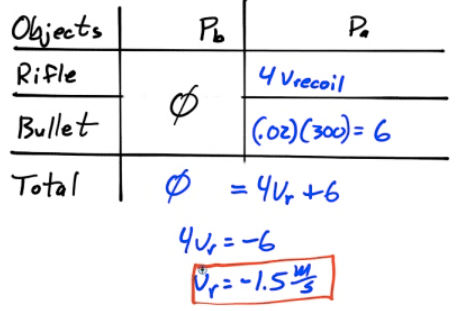 Objects P_b P_a
Rifle 4 V_recoil
∅
Bullet (.02)(300) = 6
Total ∅ = 4V_r + 6
4V_r = -6
V_r = -1.5 m/s